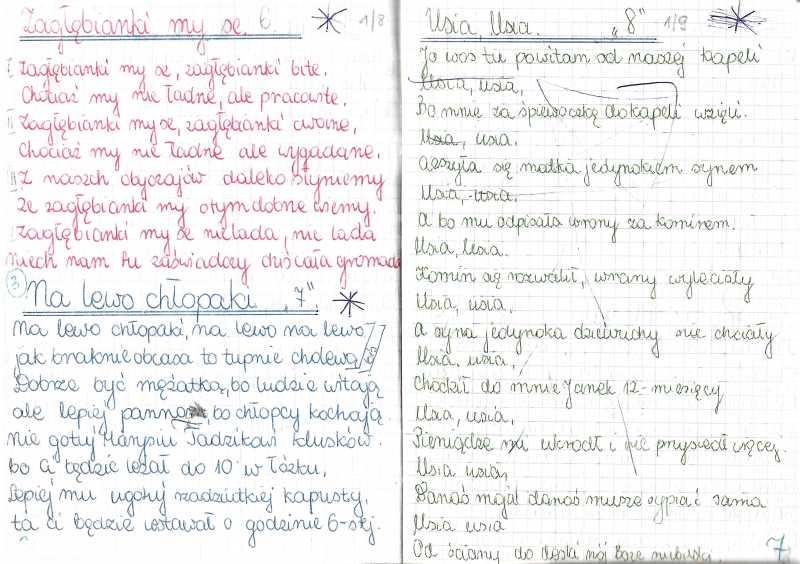 Zagłębianki my se. 6 1/8
I Zagłębianki my se, zagłębianki bite.
Chociaż my nie ładne, ale pracowite.
II Zagłębianki my se, zagłębianki cwane,
Chociaż my nie ładne ale wygadane.
III Z naszch obyczajów daleko słyniemy
Że zagłębianki my o tym dobrze wiemy.
Zagłębianki my se nie lada, nie lada
Niech nam tu zaświadczy dzisiaja gromada
3 Na lewo chłopaki „7”.
Na lewo chłopaki, na lewo na lewo
jak braknie obcasa to tupnie cholewą
Dobrze być mężatką, bo ludzie witają
ale lepiej panną, bo chłopcy kochają
nie gotuj Marysiu Tadzikowi klusków.
bo ci będzie leżał do 10 w łóżku.
Lepiej mu ugotuj rzadziutkiej kapusty,
to ci będzie wstawał o godzinie 6-stej.
Usia, Usia. „8” 1/9
Jo was tu powitam od naszej kapeli
Usia, usia,
Bo mnie za śpiewoczkę do kapeli wzięli.
Usia, usia.
Cieszyła się matka jedynokiem synem
Usia, usia.
A bo mu odpisała wrony za kominem.
Usia, Usia.
Komin się rozwalił, wrony wyleciały
Usia, usia.
A syna jedynoka dziewuchy nie chciały
Usia, usia,
Chodził do mnie Janek 12-miesięcy
Usia, usia,
Pieniądze mi ukrodł i nie przysiedł więcej.
Usia usia,
Danaś moja danaś musze sypiać sama
Usia usia
Od ściany do deski mój Boże niebieski.
7